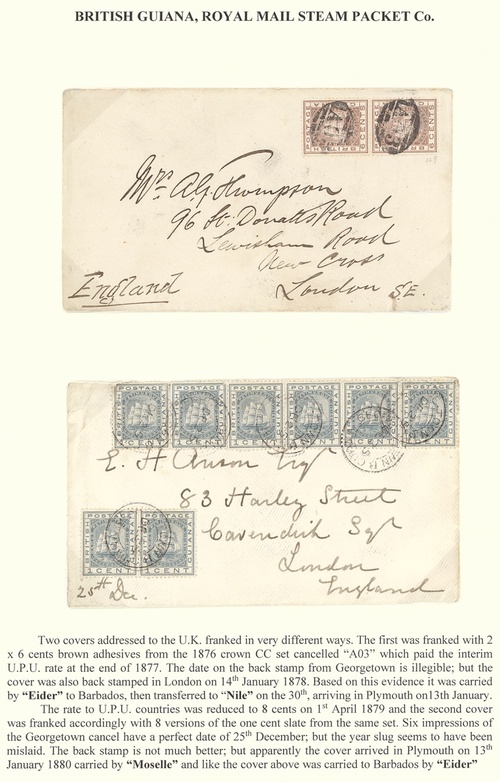 BRITISH GUIANA, ROYAL MAIL STEAM PACKET Co.
Mrs. A.G. Thompson
96 St. Donatts Road
Lewisham Road
New Cross
England
London S.E.
POSTAGE POSTAGE POSTAGE POSTAGE POSTAGE POSTAGE
1 CENT 1 CENT 1 CENT 1 CENT 1 CENT 1 CENT
E. H. Anson Esqr
83 Harley Street
POSTAGE POSTAGE
Cavendish Sqr
1 CENT 1 CENT
London
25th Dec.
England
Two covers addressed to the U.K. franked in very different ways. The first was franked with 2
x 6 cents brown adhesives from the 1876 crown CC set cancelled “A03” which paid the interim
U.P.U. rate at the end of 1877. The date on the back stamp from Georgetown is illegible; but the
cover was also back stamped in London on 14th January 1878. Based on this evidence it was carried
by “Eider” to Barbados, then transferred to “Nile” on the 30th, arriving in Plymouth on13th January.
The rate to U.P.U. countries was reduced to 8 cents on 1st April 1879 and the second cover
was franked accordingly with 8 versions of the one cent slate from the same set. Six impressions of
the Georgetown cancel have a perfect date of 25th December; but the year slug seems to have been
mislaid. The back stamp is not much better; but apparently the cover arrived in Plymouth on 13th
January 1880 carried by “Moselle” and like the cover above was carried to Barbados by “Eider”